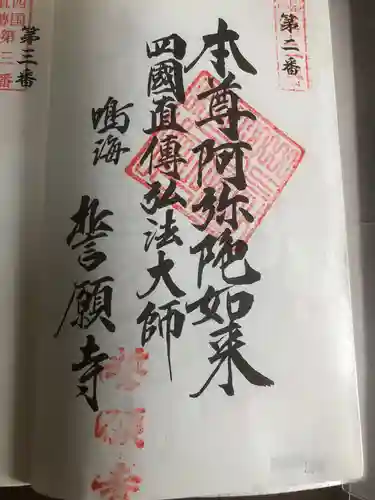 第二番
本尊阿弥陀如来
四國直傳弘法大師
鳴海
誓願寺
誓願寺
第三番